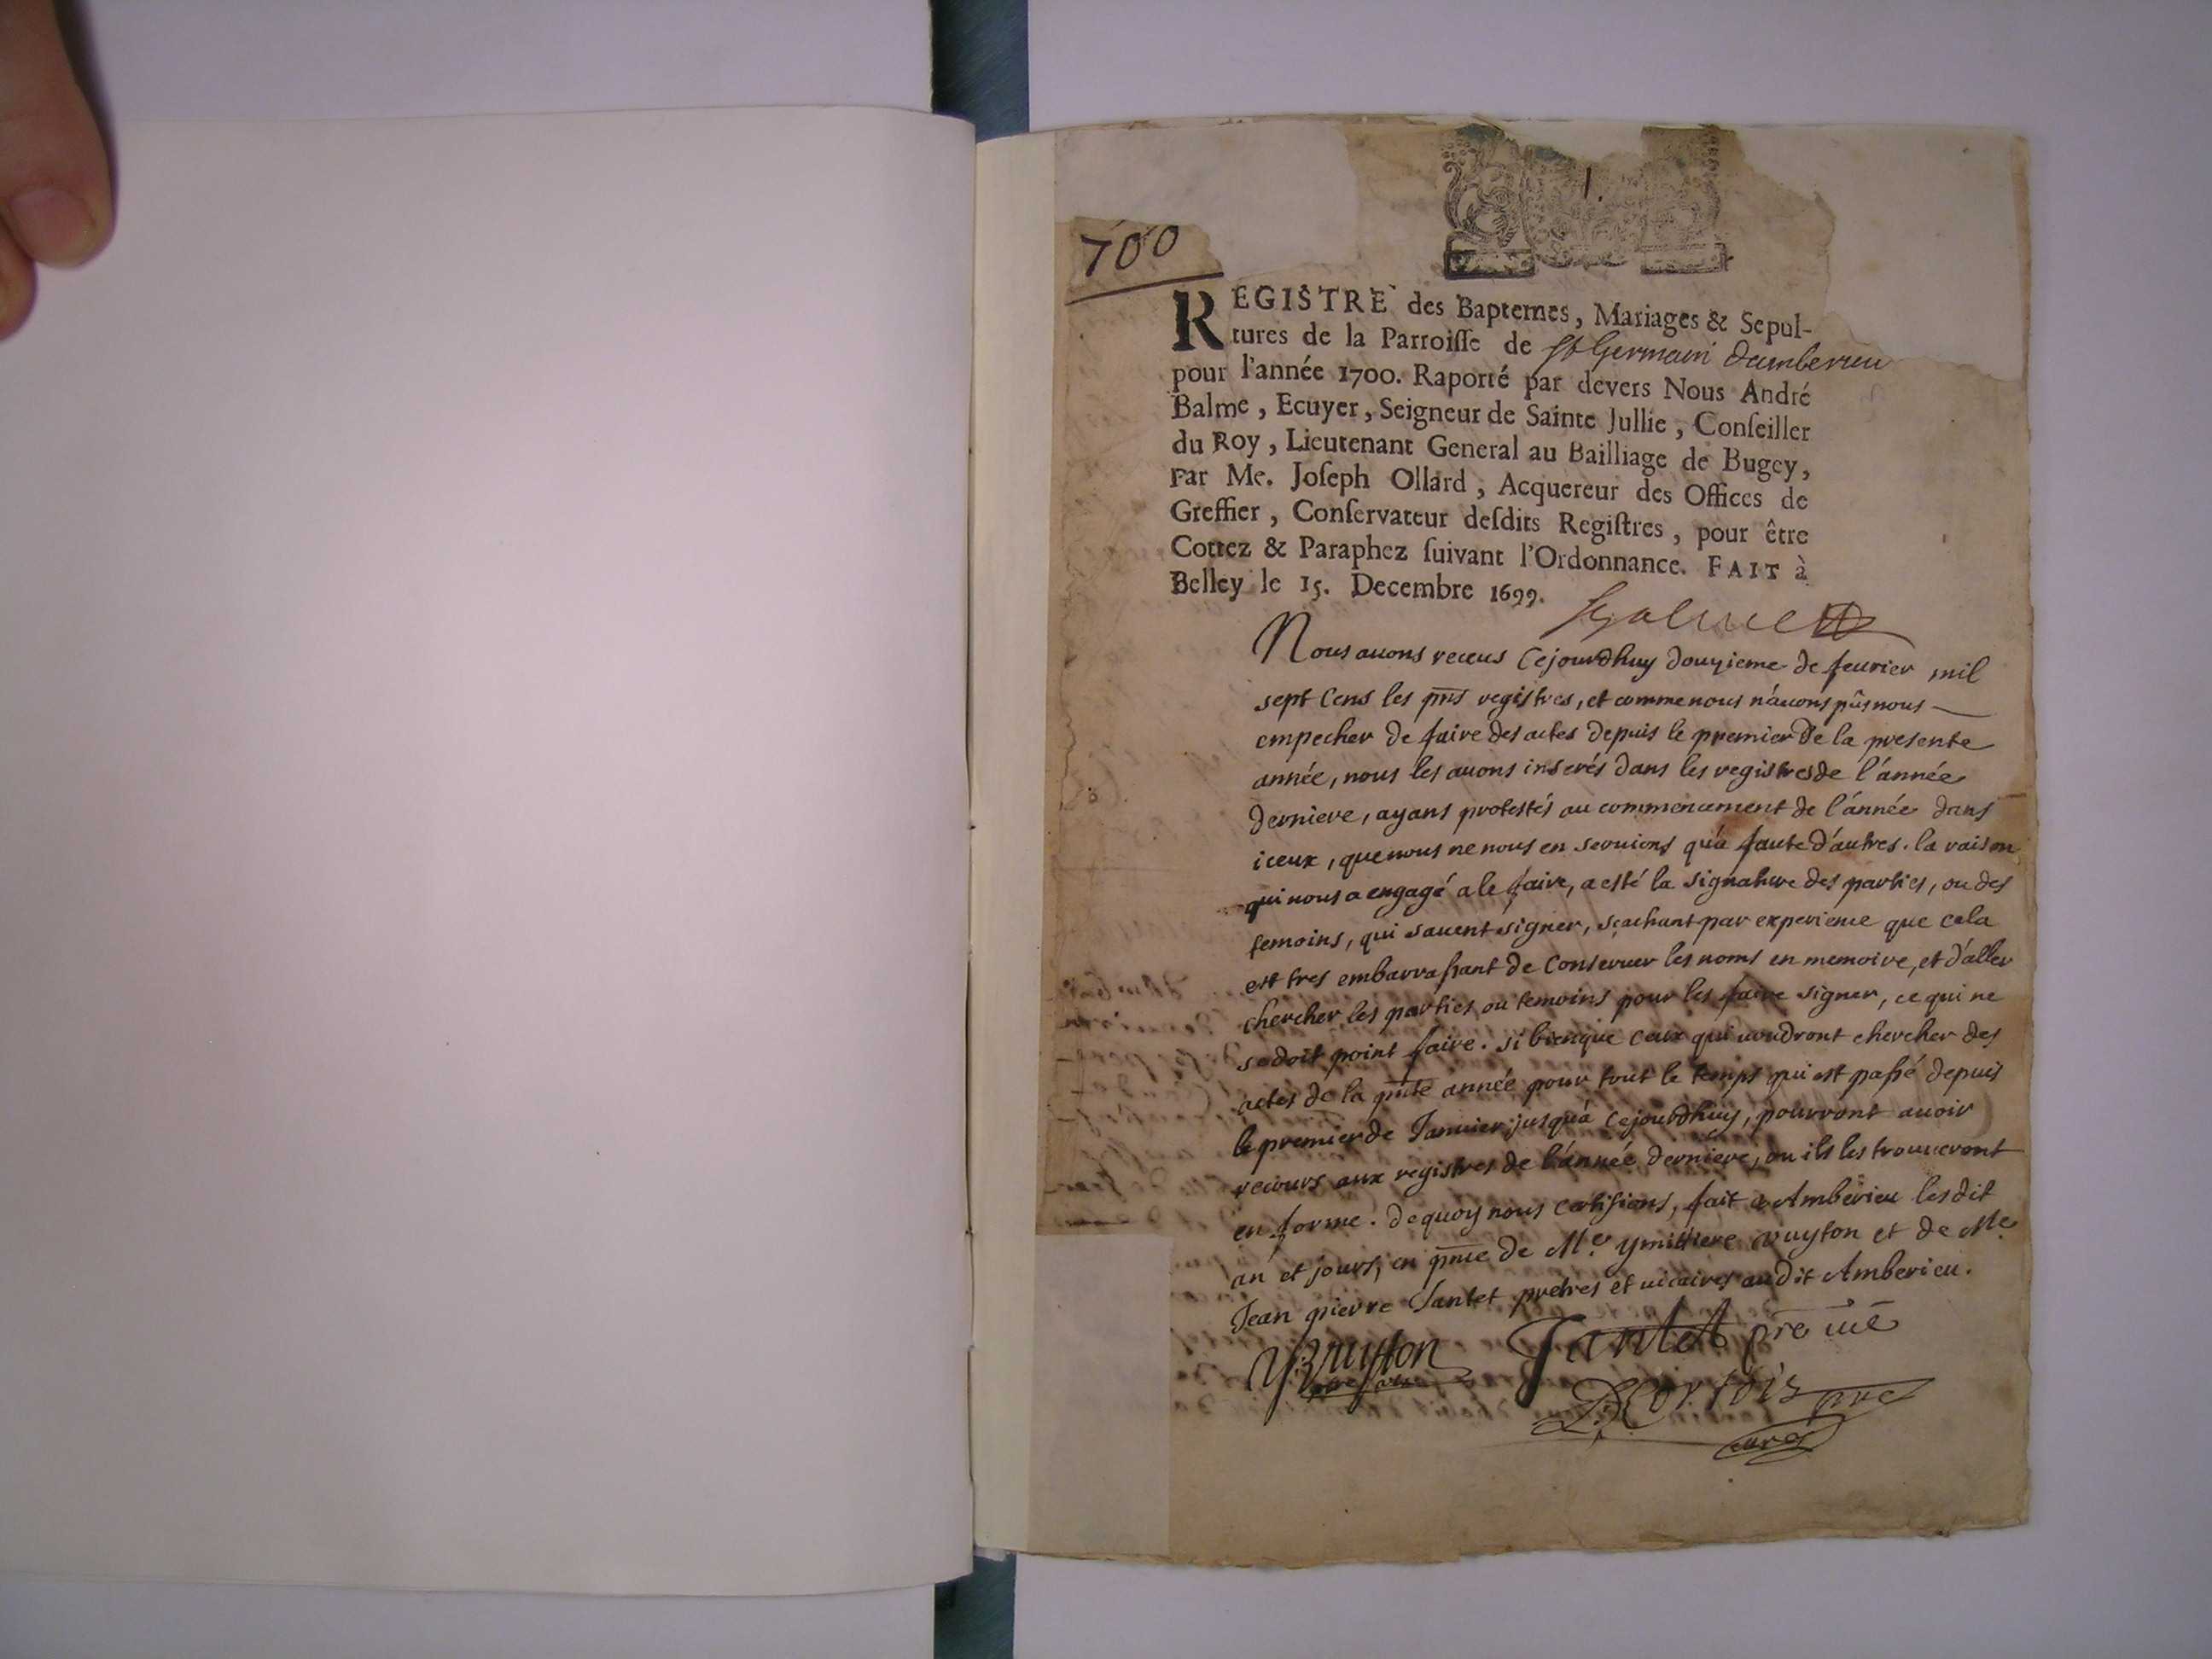 700
REGISTRE des Baptemes, Mariages & Sepul-
tures de la Parroiſſe de St Germain Damberieu
pour l'année 1700. Raporté par devers Nous André
Balme, Ecuyer, Seigneur de Sainte Jullie, Conſeiller
du Roy, Lieutenant General au Bailliage de Bugey,
Par Me. Joſeph Ollard, Acquereur des Offices de
Greffier, Conſervateur deſdits Regiſtres, pour être
Cottez & Paraphez ſuivant l'Ordonnance. FAIT à
Belley le 15. Decembre 1699.
Nous auons receus Cejourdhuy douzieme de feurier mil
sept Cens les pnts registres, et comme nous n'auons pûs nous
empecher de faire des actes depuis le premier de la presente
année, nous les auons inserés dans les registres de l'année
derniere, ayans protestés au commencement de l'année dans
iceux, que nous ne nous en seruions qu'a faute d'autres. la raison
qui nous a engagé a le faire, a esté la signature des parties, ou des
temoins, qui sauent signer, sçachant par experience que cela
est tres embarraſsant de Conseruer les noms en memoire, et d'aller
chercher les parties ou temoins pour les faire signer, ce qui ne
se doit point faire. si bienque ceux qui uoudront chercher des
actes de la pnte année pour tout le temps qui est paſsé depuis
le premier de Januier jusqu'a Cejourdhuy, pourront auoir
recours aux registres de l'année derniere, ou ils les trouueront
en forme. dequoy nous Certifions, fait a Amberieu les dit
an et jours, en pnce de Me ymittiere vuyton et de Me
Jean pierre Jantet pretres et uicaires audit Amberieu.
Y Vuyton Jantet pre uic
D Cortois pre
curé